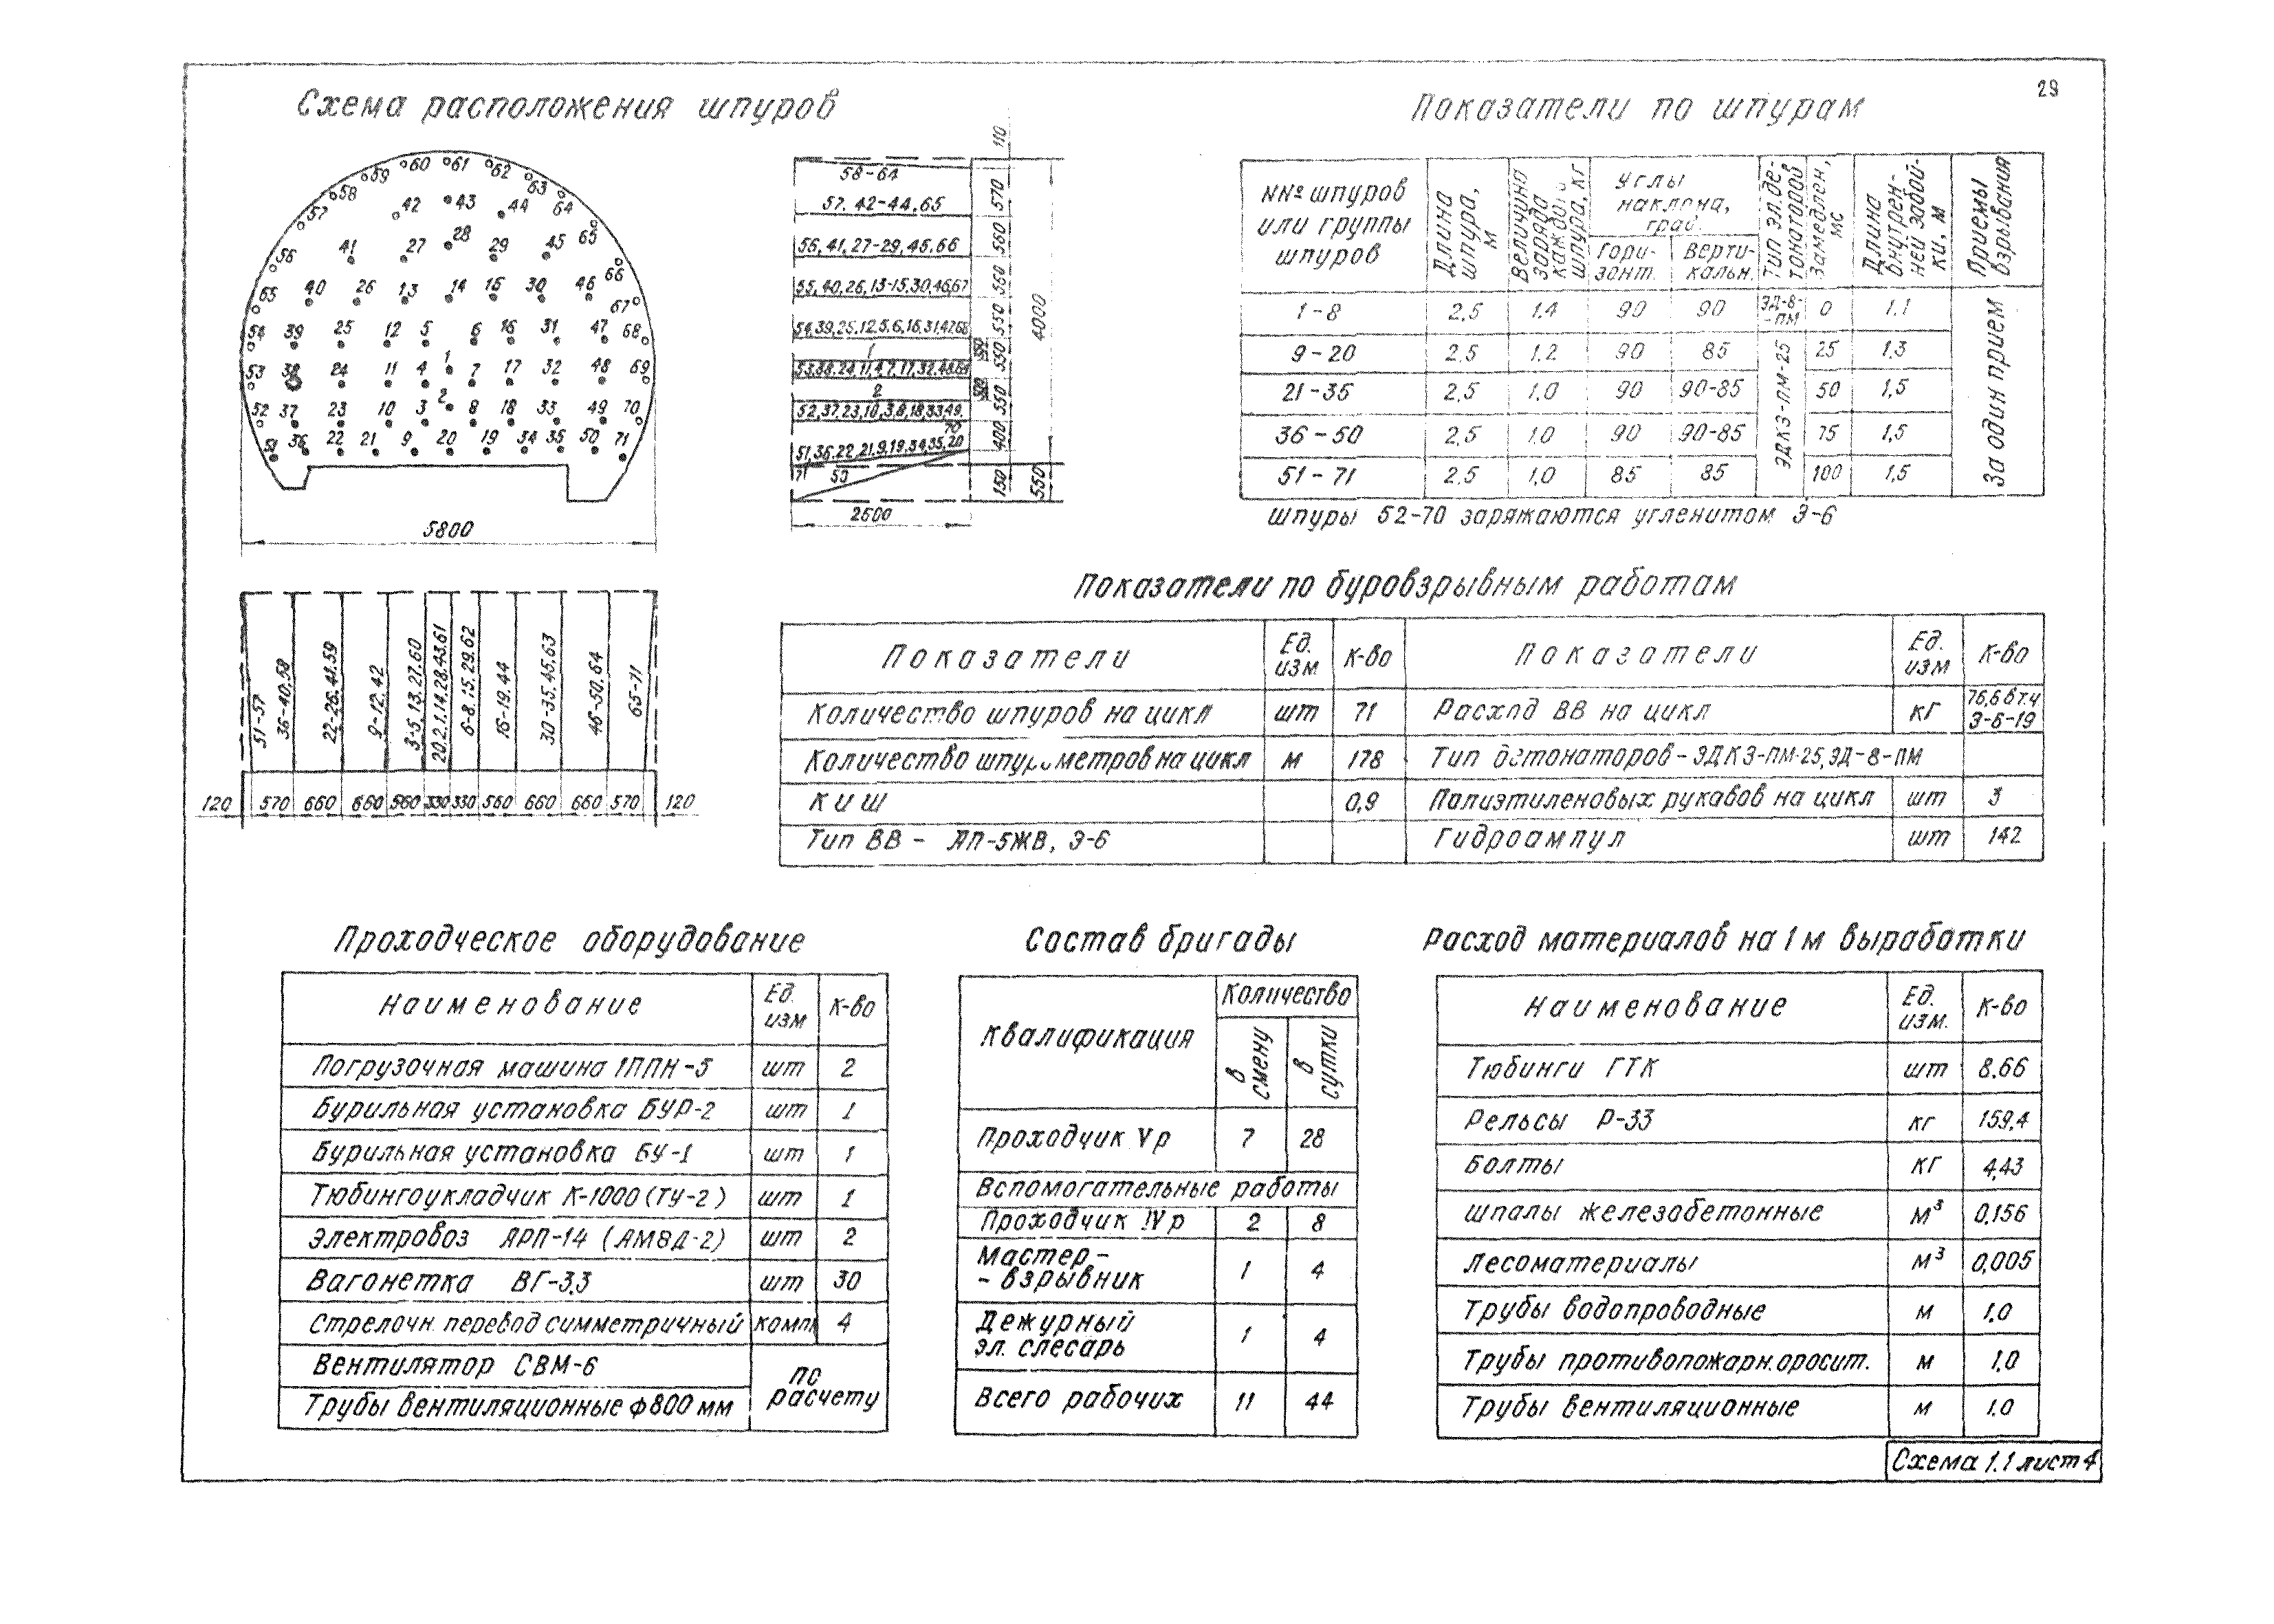 29
Схема расположения шпуров
60 61 62
59 63
58 42 43 44 64
57 65
41 27 28 29 45
56 66
40 26 13 14 15 30 46
65 67
54 39 25 12 5 6 16 31 47 68
53 38 24 11 4 1 7 17 32 48 69
52 37 23 10 3 2 8 18 33 49 70
51 36 22 21 9 20 19 34 35 50 71
5800
58-64
57, 42-44, 65
56, 41, 27-29, 45, 66
55, 40, 26, 13-15, 30, 46, 67
54, 39, 25, 12, 5, 6, 16, 31, 47 68
1
53, 38, 24, 11, 4, 7, 17, 32, 48, 69
2
52, 37, 23, 10, 3, 8, 18, 33 49,
70
51, 36, 22, 21, 9, 19, 34, 35, 20
71 50
2500
110
570
560
560
550
550
550
400
150
4000
550
51-57
36-40, 58
22-26, 41, 59
9-12, 42
3-5, 13, 27, 60
20, 2, 1, 14, 28, 43, 61
6-8, 15, 29, 62
16-19, 44
30-35, 45, 63
46-50, 64
65-71
120 570 660 660 560 330 330 560 660 660 570 120
Показатели по шпурам
NNº шпуров или группы шпуров
Длина шпура, м
Величина заряда каждого шпура, кг
Углы наклона, град.
Гори-зонт.
Верти-кальн.
Тип эл.де-тонаторов
Замедлен, мс
Длина внутрен-ней забой-ки, м
Приемы взрывания
1-8 2,5 1,4 90 90 ЭД-8--ПМ 0 1,1
9-20 2,5 1,2 90 85 25 1,3
21-35 2,5 1,0 90 90-85 50 1,5
36-50 2,5 1,0 90 90-85 75 1,5
51-71 2,5 1,0 85 85 100 1,5
ЭДКЗ-ПМ-25
За один прием
шпуры 52-70 заряжаются угленитом Э-6
Показатели по буровзрывным работам
Показатели Ед. изм К-во Показатели Ед. изм К-во
Количество шпуров на цикл шт 71 Расход ВВ на цикл кг 76,6 в т.ч Э-6-19
Количество шпурометров на цикл м 178 Тип детонаторов-ЭДКЗ-ПМ-25, ЭД-8-ПМ
КИШ 0,9 Полиэтиленовых рукавов на цикл шт 3
Тип ВВ - АП-5ЖВ, Э-6 Гидроампул шт 142
Проходческое оборудование
Наименование Ед. изм К-во
Погрузочная машина 1ППН-5 шт 2
Бурильная установка БУР-2 шт 1
Бурильная установка БУ-1 шт 1
Тюбингоукладчик К-1000 (ТУ-2) шт 1
Электровоз АРП-14 (АМ8Д-2) шт 2
Вагонетка ВГ-3,3 шт 30
Стрелочн. перевод симметричный компл 4
Вентилятор СВМ-6
Трубы вентиляционные ф800 мм
по расчету
Состав бригады
Квалификация
Количество
в смену
в сутки
Проходчик V р 7 28
Вспомогательные работы
Проходчик IV р 2 8
Мастер-
- взрывник 1 4
Дежурный
эл. слесарь 1 4
Всего рабочих 11 44
Расход материалов на 1 м выработки
Наименование Ед. изм. К-во
Тюбинги ГТК шт 8.66
Рельсы Р-33 кг 159,4
Болты кг 4,43
шпалы железобетонные м³ 0,156
лесоматериалы м³ 0,005
Трубы водопроводные м 1.0
Трубы противопожарн.оросит. м 1.0
Трубы вентиляционные м 1.0
Схема 1.1 лист 4